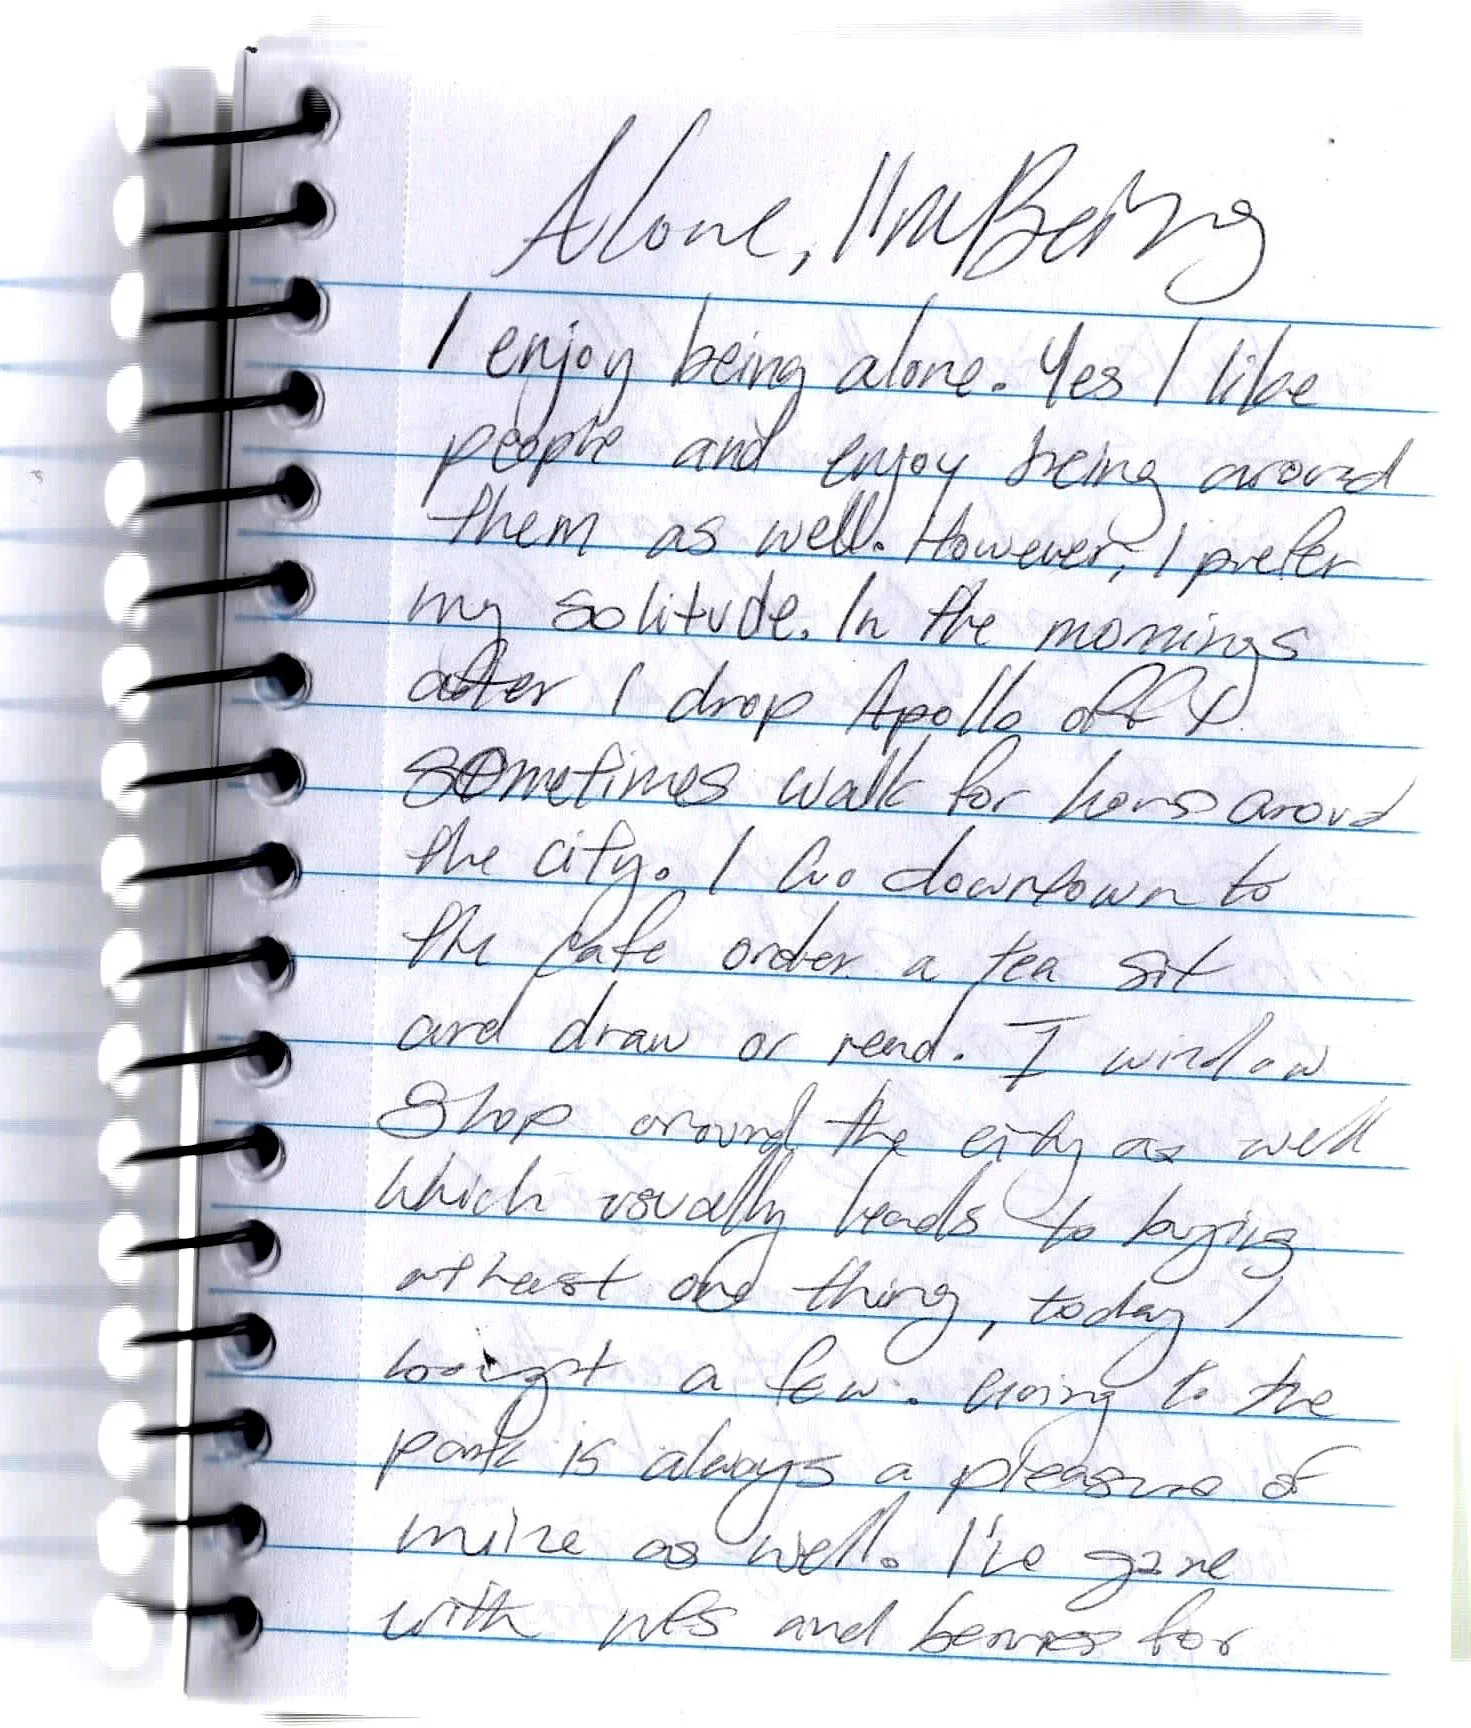 Alone, I'm Being
I enjoy being alone. Yes I like
people and enjoy being around
them as well. However, I prefer
my solitude. In the mornings
after I drop Apollo off I
sometimes walk for hours around
the city. I Go downtown to
the Cafe order a tea sit
and draw or read. I window
Shop around the city as well
Which usually leads to buying
atleast one thing, today I
bought a few. Going to the
park is always a pleasure of
mine as well. I've gone
with nuts and berries for